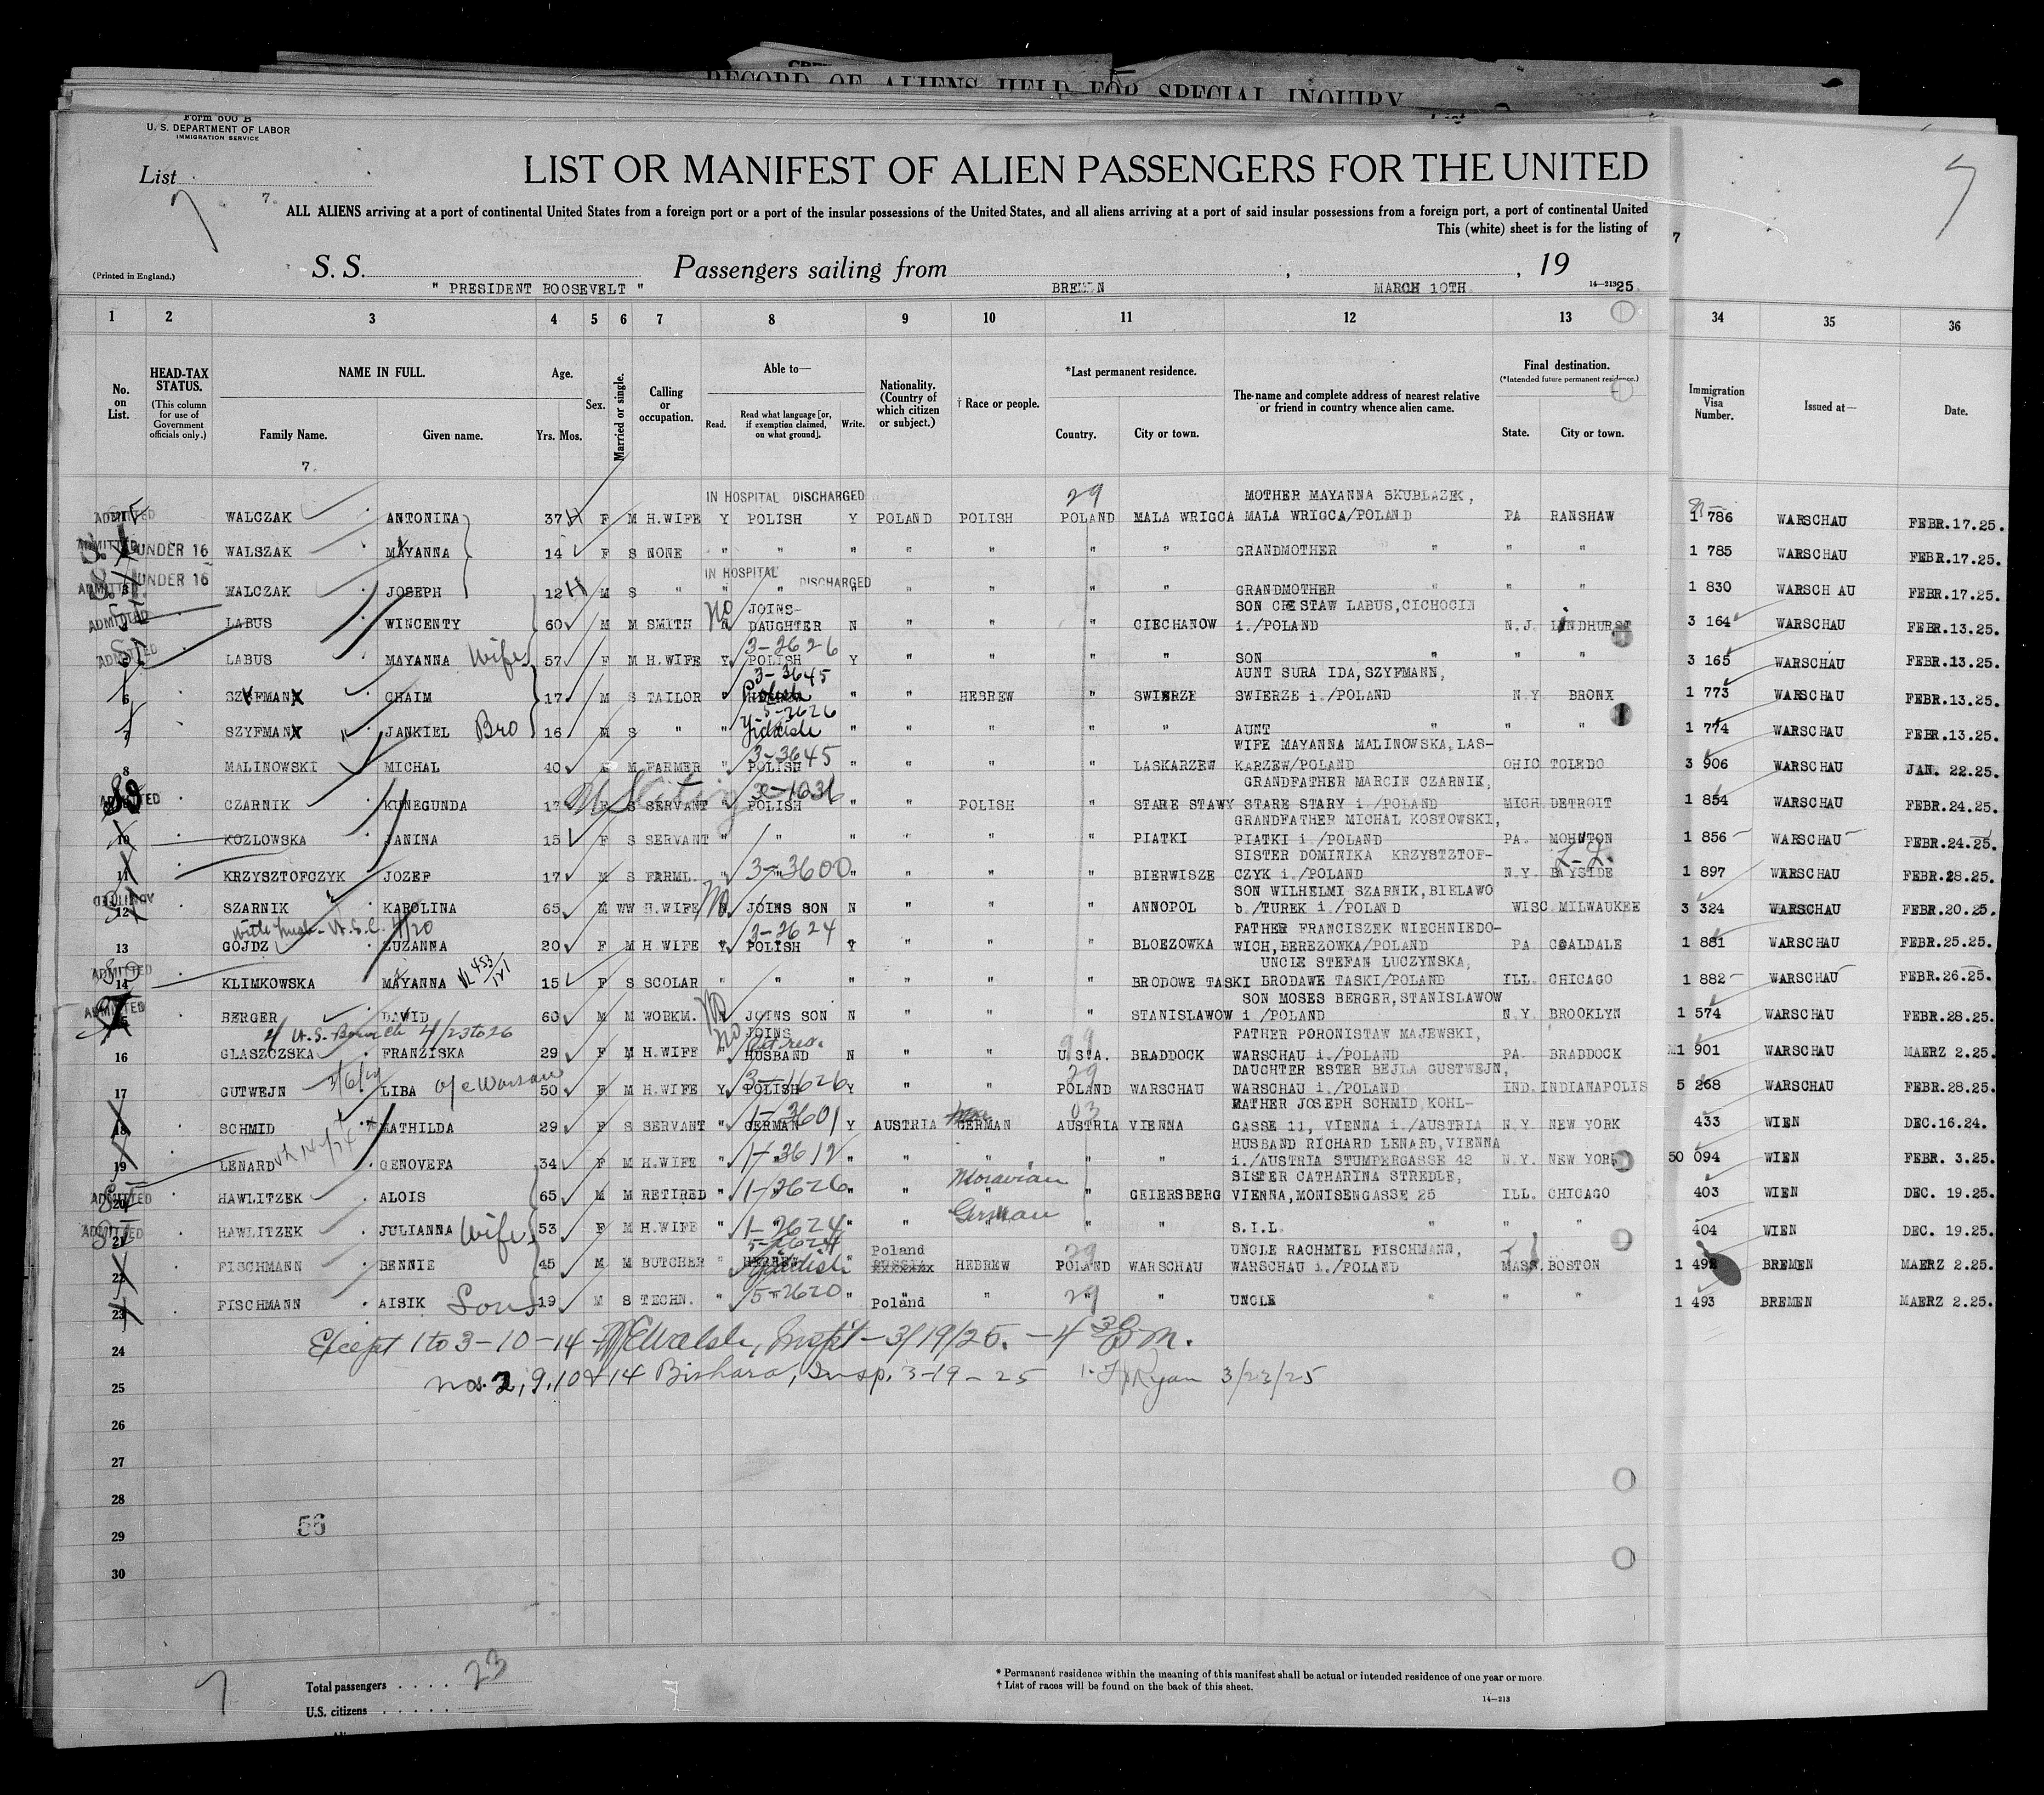 RECORD OF ALIENS HELD FOR SPECIAL INQUIRY
Form 600 B
U. S. DEPARTMENT OF LABOR
IMMIGRATION SERVICE
List 7.
7
LIST OR MANIFEST OF ALIEN PASSENGERS FOR THE UNITED
7
ALL ALIENS arriving at a port of continental United States from a foreign port or a port of the insular possessions of the United States, and all aliens arriving at a port of said insular possessions from a foreign port, a port of continental United
This (white) sheet is for the listing of
7
(Printed in England.)
S. S. " PRESIDENT ROOSEVELT " Passengers sailing from BREMEN , MARCH 10TH. , 19 25.
14—213
1 2 3 4 5 6 7 8 9 10 11 12 13 34 35 36
No. on List.
HEAD-TAX STATUS.
(This column for use of Government officials only.)
NAME IN FULL.
Family Name. Given name.
7.
Age.
Yrs. Mos.
Sex.
Married or single.
Calling or occupation.
Able to—
Read. Read what language [or, if exemption claimed, on what ground]. Write.
Nationality. (Country of which citizen or subject.)
† Race or people.
*Last permanent residence.
Country. City or town.
The name and complete address of nearest relative or friend in country whence alien came.
Final destination.
(*Intended future permanent residence.)
State. City or town.
Immigration Visa Number.
Issued at—
Date.
IN HOSPITAL DISCHARGED 29 MOTHER MAYANNA SKUBLAZEK,
ADMITTED WALCZAK ANTONINA 37 F M H.WIFE Y POLISH Y POLAND POLISH POLAND MALA WRIGCA MALA WRIGCA/POLAND PA RANSHAW 1 786 WARSCHAU FEBR.17.25.
ADMITTED UNDER 16 WALSZAK MAYANNA 14 F S NONE " " " " " " " GRANDMOTHER " " " 1 785 WARSCHAU FEBR.17.25.
IN HOSPITAL DISCHARGED
ADMITTED UNDER 16 WALCZAK JOSEPH 12 M S " " " " " " " " GRANDMOTHER " " " 1 830 WARSCH AU FEBR.17.25.
No JOINS- SON CRESTAW LABUS,CICHOCIN
ADMITTED LABUS WINCENTY 60 M M SMITH N DAUGHTER N " " " CIECHANOW i./POLAND N.J. LINDHURST 3 164 WARSCHAU FEBR.13.25.
3-2626
ADMITTED LABUS MAYANNA Wife 57 F M H.WIFE Y POLISH Y " " " " SON " " " 3 165 WARSCHAU FEBR.13.25.
3-3645 AUNT SURA IDA,SZYFMANN,
6 SZYFMAN CHAIM 17 M S TAILOR " Polish " " HEBREW " SWIERZE SWIERZE i./POLAND N.Y. BRONX 1 773 WARSCHAU FEBR.13.25.
5-2626
7 SZYFMAN JANKIEL Bro 16 M S " " Yiddish " " " " " AUNT " " " 1 774 WARSCHAU FEBR.13.25.
3-3645 WIFE MAYANNA MALINOWSKA,LAS-
8 MALINOWSKI MICHAL 40 M M FARMER " POLISH " " " " LASKARZEW KARZEW/POLAND OHIO TOLEDO 3 906 WARSCHAU JAN. 22.25.
3-1036 GRANDFATHER MARCIN CZARNIK,
ADMITTED CZARNIK KUNEGUNDA 17 F S SERVANT " POLISH " " POLISH " STARE STAWY STARE STARY i./POLAND MICH. DETROIT 1 854 WARSCHAU FEBR.24.25.
GRANDFATHER MICHAL KOSTOWSKI,
10 KOZLOWSKA JANINA 15 F S SERVANT " " " " " " PIATKI PIATKI i./POLAND PA. MOHNTON 1 856 WARSCHAU FEBR.24.25.
SISTER DOMINIKA KRZYSTZTOF-
11 KRZYSZTOFCZYK JOZEF 17 M S FARML. " 3-3600 " " " " BIERWISZE CZYK i./POLAND N.Y. BAYSIDE 1 897 WARSCHAU FEBR.28.25.
SON WILHELMI SZARNIK,BIELAWO
ADMITTED 12 SZARNIK KAROLINA 65 M WW H.WIFE N JOINS SON N " " " ANNOPOL b./TUREK i./POLAND WISC. MILWAUKEE 3 324 WARSCHAU FEBR.20.25.
3-2624 FATHER FRANCISZEK NIECHNIEDO-
13 GOJDZ ZUZANNA 20 F M H.WIFE Y POLISH Y " " " BLOEZOWKA WICH,BEREZOWKA/POLAND PA COALDALE 1 881 WARSCHAU FEBR.25.25.
UNCLE STEFAN LUCZYNSKA,
ADMITTED 14 KLIMKOWSKA MAYANNA 15 F S SCOLAR " " " " " " BRODOWE TASKI BRODAWE TASKI/POLAND ILL. CHICAGO 1 882 WARSCHAU FEBR.26.25.
No SON MOSES BERGER,STANISLAWOW
ADMITTED BERGER DAVID 60 M M WORKM. JOINS SON N " " " STANISLAWOW i /POLAND N.Y. BROOKLYN 1 574 WARSCHAU FEBR.28.25.
no JOINS FATHER PORONISTAW MAJEWSKI,
16 GLASZCZSKA FRANZISKA 29 F M H.WIFE " HUSBAND N " " U.S.A. BRADDOCK WARSCHAU i./POLAND PA. BRADDOCK M1 901 WARSCHAU MAERZ 2.25.
3-1626 29 DAUGHTER ESTER BEJLA GUSTWEJN,
17 GUTWEJN LIBA o/c Warsaw 50 F M H.WIFE Y POLISH Y " " POLAND WARSCHAU WARSCHAU i./POLAND IND. INDIANAPOLIS 5 268 WARSCHAU FEBR.28.25.
1-3601 03 FATHER JOSEPH SCHMID,KOHL-
18 SCHMID MATHILDA 29 F S SERVANT " GERMAN Y AUSTRIA GERMAN AUSTRIA VIENNA GASSE 11, VIENNA i./AUSTRIA N.Y. NEW YORK 433 WIEN DEC.16.24.
1-3612 HUSBAND RICHARD LENARD,VIENNA
19 LENARD GENOVEFA 34 F M H.WIFE " " " " " " " i./AUSTRIA STUMPERGASSE 42 N.Y. NEW YORK 50 094 WIEN FEBR. 3.25.
1-2626 Moravian SISTER CATHARINA STREDLE,
ADMITTED 20 HAWLITZEK ALOIS 65 M M RETIRED " " " " " " GEIERSBERG VIENNA,MONISENGASSE 25 ILL. CHICAGO 403 WIEN DEC. 19.25.
1-2624 German
ADMITTED 21 HAWLITZEK JULIANNA Wife 53 F M H.WIFE " " " " " " " S.I.L. " " " 404 WIEN DEC. 19.25.
5-2624 Poland 29 UNCLE RACHMIEL FISCHMANN,
22 FISCHMANN BENNIE 45 M M BUTCHER " Yiddish " HEBREW POLAND WARSCHAU WARSCHAU i./POLAND MASS. BOSTON 1 492 BREMEN MAERZ 2.25.
5-2620 29
23 FISCHMANN AISIK Son 19 M S TECHN. " " " Poland " " " UNCLE " " " 1 493 BREMEN MAERZ 2.25.
24 Except 1 to 3-10-14 Walsh, Insp't - 3/19/25. - 4 30 P.m.
25 nos. 2, 9, 10 & 14 Bishara, Insp. 3-19-25 1- Ryan 3/23/25
26
27
28
29 56
30
7
Total passengers . . . . 23
U.S. citizens . . . . .
* Permanent residence within the meaning of this manifest shall be actual or intended residence of one year or more.
† List of races will be found on the back of this sheet.
14—213